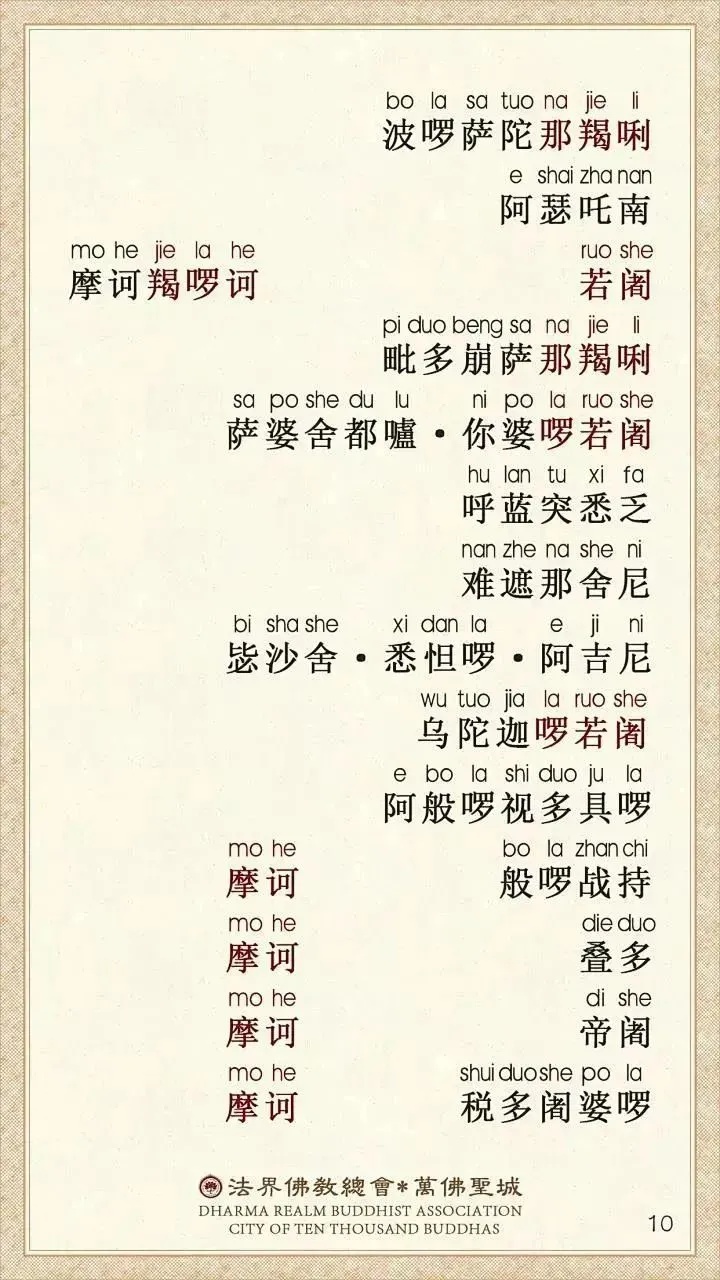 bo la sa tuo na jie li
波啰萨陀那羯唎
e shai zha nan
阿瑟吒南
mo he jie la he ruo she
摩诃羯啰诃 若阇
pi duo beng sa na jie li
毗多崩萨那羯唎
sa po she du lu ni po la ruo she
萨婆舍都嚧·你婆啰若阇
hu lan tu xi fa
呼蓝突悉乏
nan zhe na she ni
难遮那舍尼
bi sha she xi dan la e ji ni
毖沙舍·悉怛啰·阿吉尼
wu tuo jia la ruo she
乌陀迦啰若阇
e bo la shi duo ju la
阿般啰视多具啰
mo he bo la zhan chi
摩诃 般啰战持
mo he die duo
摩诃 叠多
mo he di she
摩诃 帝阇
mo he shui duo she po la
摩诃 税多阇婆啰
法界佛教總會*萬佛聖城
DHARMA REALM BUDDHIST ASSOCIATION
CITY OF TEN THOUSAND BUDDHAS
10